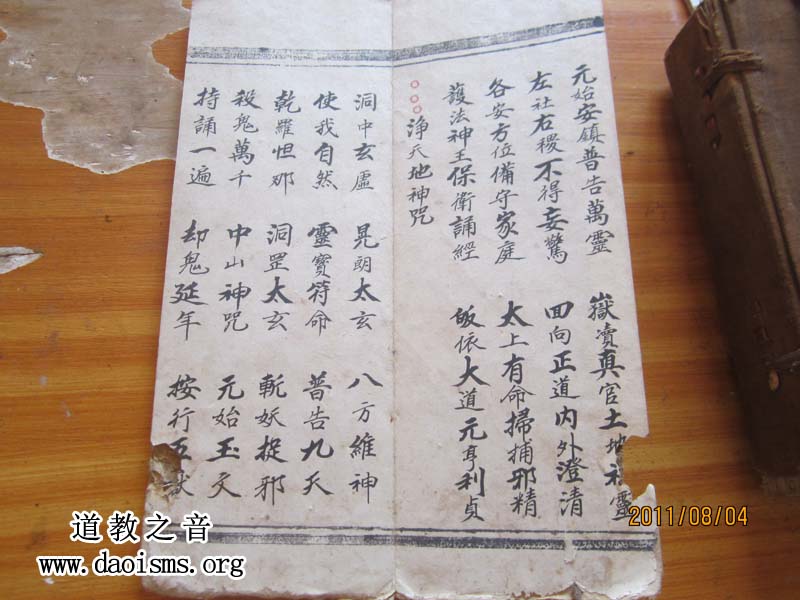 元始安鎮普告萬靈 嶽瀆真官土地祇靈
左社右稷不得妄驚 回向正道内外澄清
各安方位備守家庭 太上有命掃捕邪精
護法神王保衛誦經 皈依大道元亨利貞
淨天地神咒
洞中玄虛 晃朗太玄 八方維神
使我自然 靈寶符命 普告九天
乾羅怛那 洞罡太玄 斬妖捉邪
殺鬼萬千 中山神咒 元始玉文
持誦一遍 却鬼延年 按行五嶽
道教之音
www.daoisms.org
2011/08/04